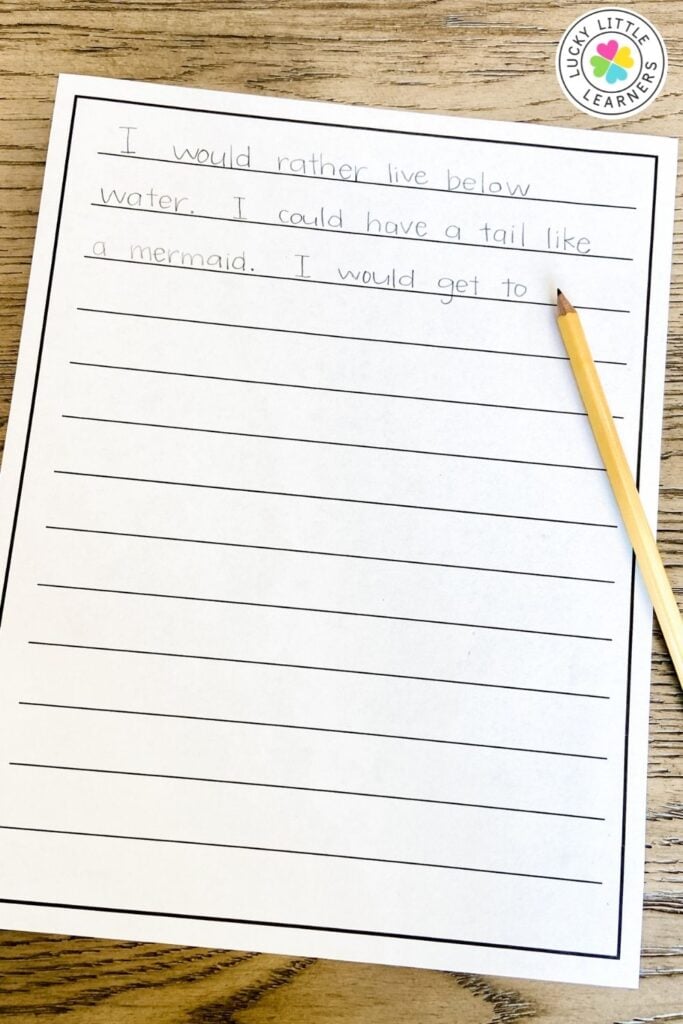 LUCKY LITTLE
LEARNERS
I would rather live below
water. I could have a tail like
a mermaid. I would get to